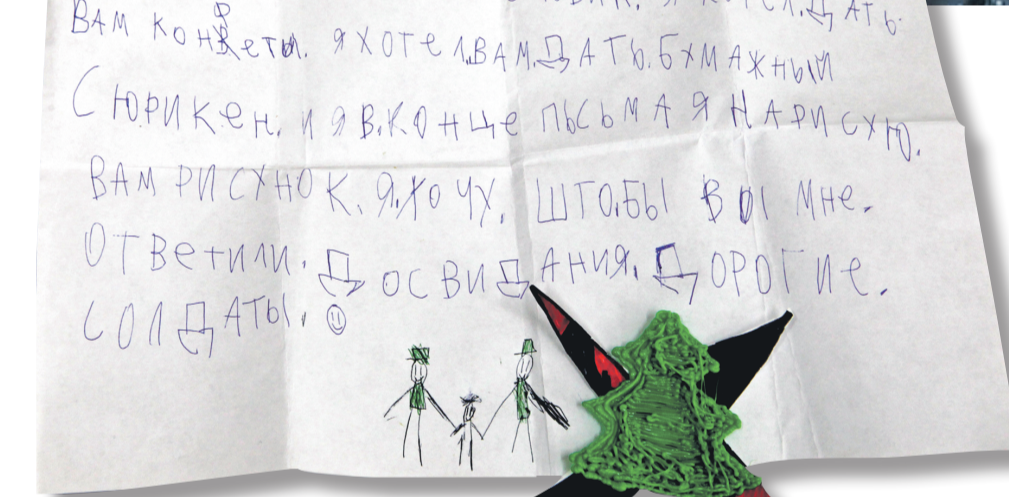 ВАМ КОНФЕТЫ. Я ХОТЕЛ.ВАМ.ДАТЬ.БУМАЖНЫЙ
СЮРИКЕН. И Я В.КОНЦЕ ПЬСЬМА Я НАРИСУЮ.
ВАМ РИСУНОК. Я.ХОЧУ. ШТО.БЫ ВЫ МНЕ.
ОТВЕТИЛИ. ДОСВИДАНИЯ. ДОРОГИЕ.
СОЛДАТЫ. ☺